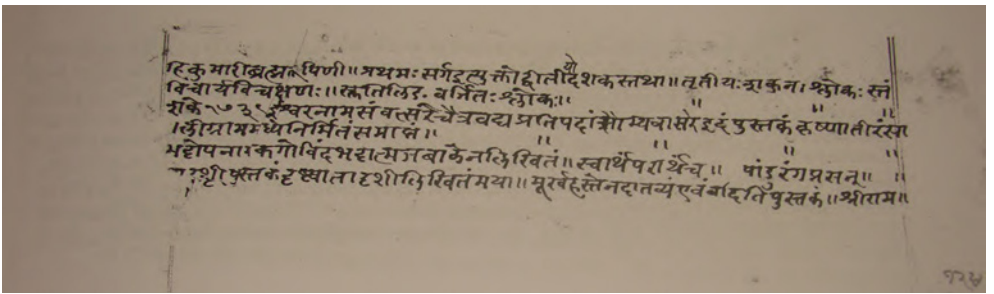 हि कुमारी ब्रह्मरूपिणी ॥ प्रथमः सर्ग इत्युक्तो द्वितीयो दशकस्तथा ॥ तृतीयः शकुन। श्लोकः
विचार्यविचक्षणैः ॥ वर्जितः श्लोकः ॥
शके १७३९ ईश्वरनामसंवत्सरे चैत्रवद्यप्रतिपदां सौम्यवासरे इदं पुस्तकं कृष्णातीरं
ग्राममध्ये निर्मितं समाप्तं ॥
भट्टोपनामक गोविंदभट्टात्मज बाकेन लिखितं ॥ स्वार्थं परार्थं च ॥ पांडुरंग प्रसन् ॥
पुस्तकं दृष्ट्वा तादृशी लिखितं मया ॥ मूर्खहस्ते न दातव्यं एवं वदति पुस्तकं ॥ श्रीराम ॥